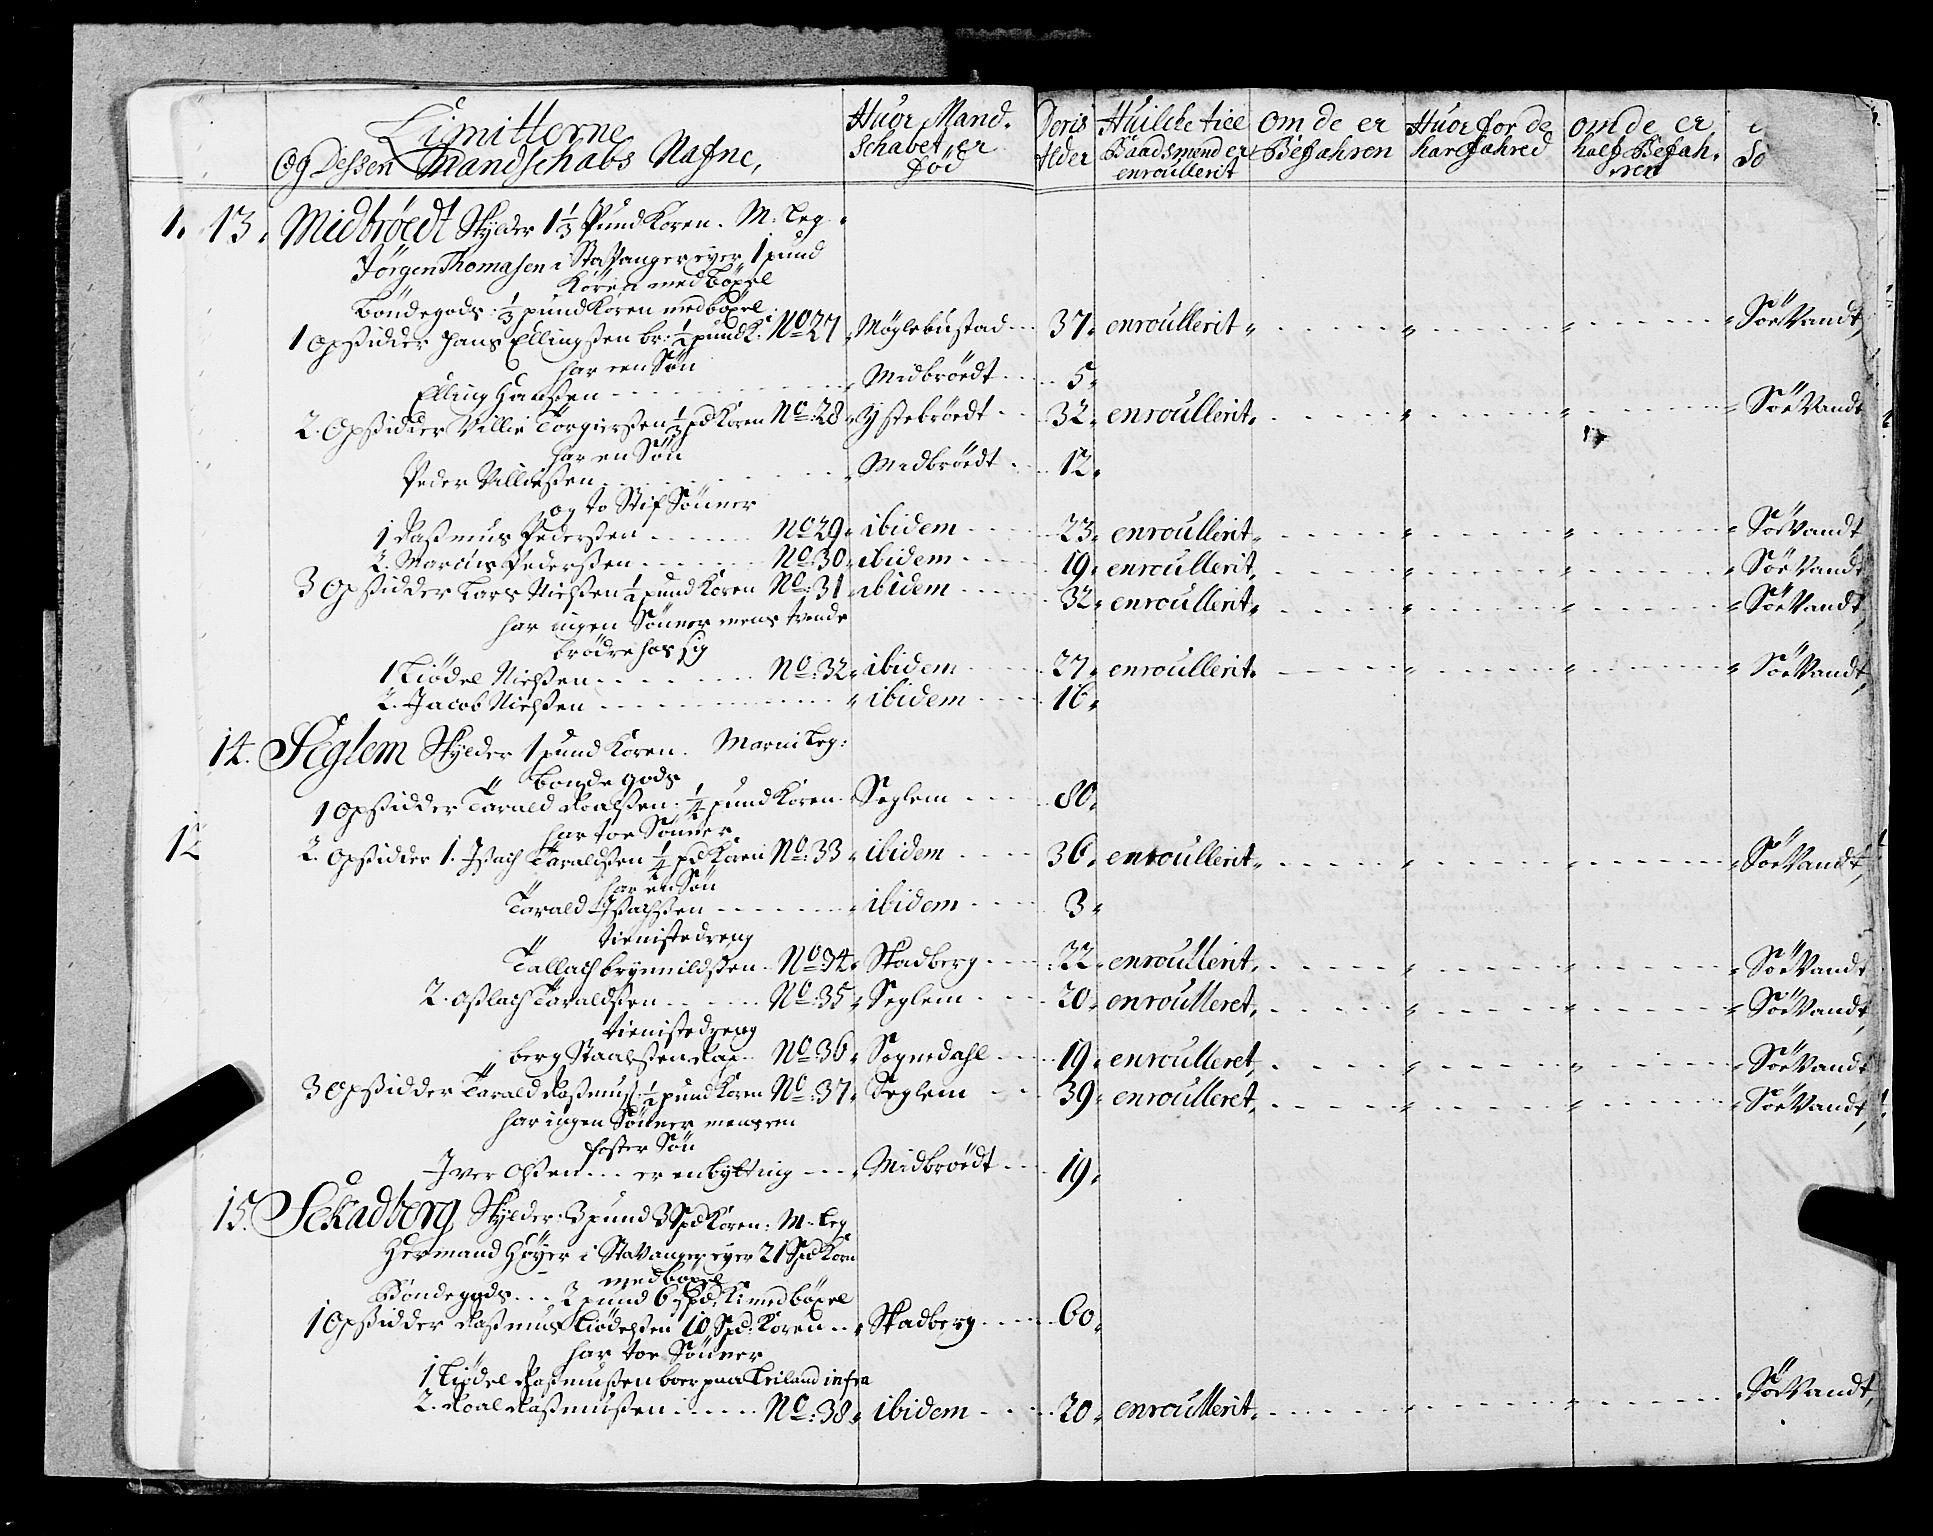 Limitterne
og Dessen Mandschabs Nafne,
Huor Mand-
schabet er
Fód
Deris
Alder
Huilche till
Baadsmend er
enroullerit
om de er
Befahren
Huor for de
har fahred
om de er
half Befah-
ren
1. 13. Midbröedt Skylder 1 1/3 Pund Koren. M: Leg.
Jörgen Thomasen i Stavanger eyer 1 pund
Koren med böxel
Böndegods 1/3 pund Koren med böxel
1 Opsidder Hans Ellingsen br: 1/2 pund K: No 27 Möglebustad 37 enroullerit Söe Vandt
har een Sön
Elling Hansen Midbröedt 5
2. Opsidder Villie Torgiersen 1/3 pd Koren No: 28 Ystebröedt 32 enroullerit Söe Vandt
har en Sön
Peder Villiesen Midbröedt 12
og to Stif Sönner
1 Rasmus Pedersen No 29 ibidem 23 enroullerit Söe Vandt
2. Marcus Pedersen No: 30 ibidem 19 enroullerit Söe Vandt
3 Opsidder Lars Nielsen 1/2 pund Koren No: 31 ibidem 32 enroullerit Söe Vandt
har ingen Sönner mens tvende
brödre hos sig
1 Tiödel Nielsen No: 32 ibidem 27 enroullerit Söe Vandt
2. Jacob Nielsen ibidem 16
14. Seglem Skylder 1 pund Koren. Marni Leg:
bonde gods
1 Opsidder Tarald Roalsen 1/4 pund Koren Seglem 80
har toe Sönner
12
2. Opsidder 1. Isach Taraldsen 1/4 pd Koren No: 33 ibidem 36 enroullerit Söe Vandt
har en Sön
Tarald Isachsen ibidem 3
tienistedreng
Tallach brynnildsen No: 34 Skadberg 22 enroullerit Söe Vandt
2. Oslach Taraldsen No: 35 Seglem 20 enroulleret Söe Vandt
tienistedreng
berg Staalesen No: 36 Sognedahl 19 enroulleret Söe Vandt
3 Opsidder Tarald Rasmus: 1/2 pund Koren No: 37 Seglem 39 enroulleret Söe Vandt
har ingen Sönner mens en
foster Sön
Iver Olsen er en bytting Midbröedt 19
15. Sckadberg Skylder: 3 pund 3 Spd Koren: M- Leg
Hermand Höyer i Stavanger eyer 21 Spd Korn
med böxel
Böndegods 2 pund 6 Spd: K: med böxel
1 Opsidder Rasmus Tiödelsen 10 Spd: Koren Skadberg 60
har toe Sönner
1 Tiödel Rasmussen boer paa Leiland infra
2. Roal Rasmussen No: 38 ibidem 20 enroullerit Söe Vandt